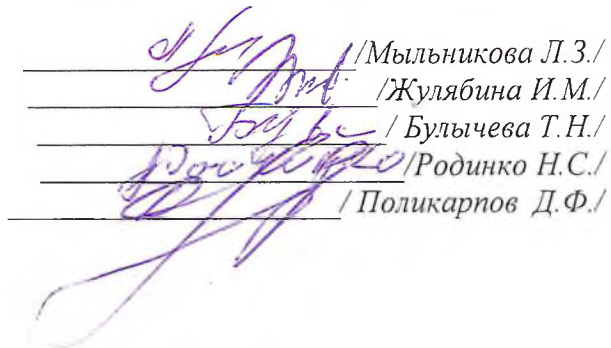 /Мыльникова Л.З./
/Жулябина И.М./
/ Булычева Т.Н./
/Родинко Н.С./
/ Поликарпов Д.Ф./